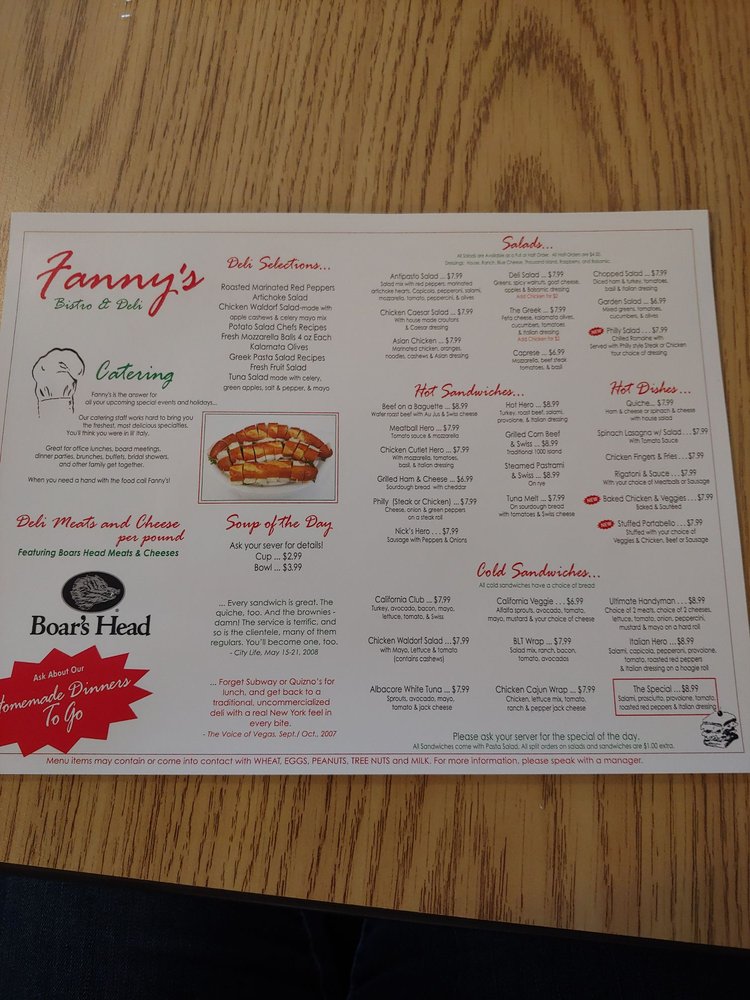 Fanny's
Bistro & Deli
Catering
Fanny's is the answer for
all your upcoming special events and holidays...
Our catering staff works hard to bring you
the freshest, most delicious specialties.
You'll think you were in lil' Italy.
Great for office lunches, board meetings,
dinner parties, brunches, buffets, bridal showers,
and other family get together.
When you need a hand with the food call Fanny's!
Deli Meats and Cheese
per pound
Featuring Boars Head Meats & Cheeses
Boar's Head
Ask About Our
Homemade Dinners
To Go
Deli Selections...
Roasted Marinated Red Peppers
Artichoke Salad
Chicken Waldorf Salad-made with
apple cashews & celery mayo mix
Potato Salad Chefs Recipes
Fresh Mozzarella Balls 4 oz Each
Kalamata Olives
Greek Pasta Salad Recipes
Fresh Fruit Salad
Tuna Salad made with celery,
green apples, salt & pepper, & mayo
Soup of the Day
Ask your sever for details!
Cup ... $2.99
Bowl ... $3.99
... Every sandwich is great. The
quiche, too. And the brownies -
damn! The service is terrific, and
so is the clientele, many of them
regulars. You'll become one, too.
- City Life, May 15-21, 2008
... Forget Subway or Quizno's for
lunch, and get back to a
traditional, uncommercialized
deli with a real New York feel in
every bite.
- The Voice of Vegas, Sept./ Oct., 2007
Salads...
All Salads are Available as a Full or Half Order. All Half Orders are $4.50.
Dressings: House, Ranch, Blue Cheese, Thousand Island, Raspberry, and Balsamic.
Antipasto Salad ... $7.99
Salad mix with red peppers, marinated
artichoke hearts, Capicola, pepperoni, salami,
mozzarella, tomato, pepperoncini, & olives
Chicken Caesar Salad ... $7.99
With house made croutons
& Caesar dressing
Asian Chicken ... $7.99
Marinated chicken, oranges,
noodles, cashews & Asian dressing
Deli Salad ... $7.99
Greens, spicy walnuts, goat cheese,
apples & Balsamic dressing
Add Chicken for $2
The Greek ... $7.99
Feta cheese, kalamata olives,
cucumbers, tomatoes
& Italian dressing
Add Chicken for $2
Caprese ... $6.99
Mozzarella, beef steak
tomatoes, & basil
Chopped Salad ... $7.99
Diced ham & turkey, tomatoes,
basil & Italian dressing
Garden Salad ... $6.99
Mixed greens, tomatoes,
cucumbers, & olives
NEW
Philly Salad . . . $7.99
Chilled Romaine with
Served with Philly style Steak or Chicken
Your choice of dressing
Hot Sandwiches...
Beef on a Baguette ... $8.99
Wafer roast beef with Au Jus & Swiss cheese
Meatball Hero ... $7.99
Tomato sauce & mozzarella
Chicken Cutlet Hero ... $7.99
With mozzarella, tomatoes,
basil, & Italian dressing
Grilled Ham & Cheese ... $6.99
Sourdough bread with cheddar
Philly (Steak or Chicken) ... $7.99
Cheese, onion & green peppers
on a steak roll
Nick's Hero . . . $7.99
Sausage with Peppers & Onions
Hot Hero ... $8.99
Turkey, roast beef, salami,
provolone, & Italian dressing
Grilled Corn Beef
& Swiss ... $8.99
Traditional 1000 Island
Steamed Pastrami
& Swiss ... $8.99
On rye
Tuna Melt ... $7.99
On sourdough bread
with tomatoes & Swiss cheese
Hot Dishes...
Quiche... $7.99
Ham & cheese or spinach & cheese
with house salad
Spinach Lasagna w/ Salad . . . $7.99
With Tomato Sauce
Chicken Fingers & Fries . . . $7.99
Rigatoni & Sauce . . . $7.99
With your choice of Meatballs or Sausage
NEW
Baked Chicken & Veggies . . . $7.99
Baked & Sautéed
NEW
Stuffed Portabello . . . $7.99
Stuffed with your choice of
Veggies & Chicken, Beef or Sausage
Cold Sandwiches...
All cold sandwiches have a choice of bread
California Club ... $7.99
Turkey, avocado, bacon, mayo,
lettuce, tomato, & Swiss
Chicken Waldorf Salad ... $7.99
with Mayo, Lettuce & tomato
(contains cashews)
Albacore White Tuna ... $7.99
Sprouts, avocado, mayo,
tomato & jack cheese
California Veggie . . . $6.99
Alfalfa sprouts, avocado, tomato,
mayo, mustard & your choice of cheese
BLT Wrap ... $7.99
Salad mix, ranch, bacon,
tomato, avocados
Chicken Cajun Wrap ... $7.99
Chicken, lettuce mix, tomato,
ranch & pepper jack cheese
Ultimate Handyman ... $8.99
Choice of 2 meats, choice of 2 cheeses,
lettuce, tomato, onion, pepperoncini,
mustard & mayo on a hard roll
Italian Hero ... $8.99
Salami, capicola, pepperoni, provolone,
tomato, roasted red peppers
& Italian dressing on a hoagie roll
The Special ...$8.99
Salami, prosciutto, provolone, tomato,
roasted red peppers & Italian dressing
Please ask your server for the special of the day.
All Sandwiches come with Pasta Salad. All split orders on salads and sandwiches are $1.00 extra.
Menu items may contain or come into contact with WHEAT, EGGS, PEANUTS, TREE NUTS and MILK. For more information, please speak with a manager.